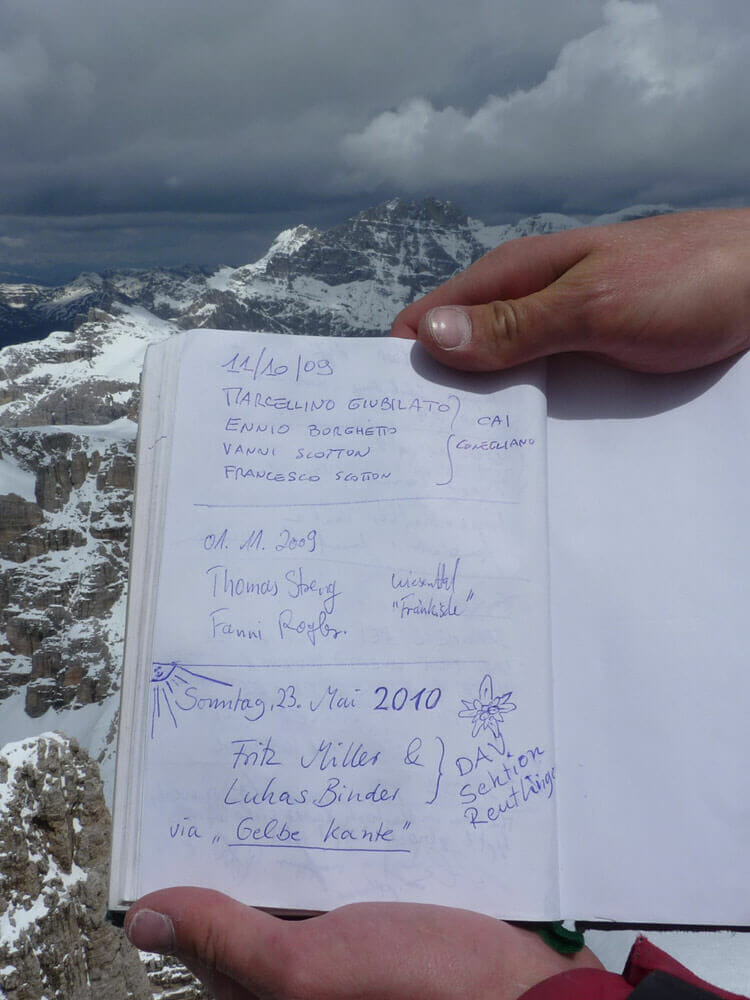 11/10/09
MARCELLINO GIUBILATO
ENNIO BORGHETTO
VANNI SCOTTON
FRANCESCO SCOTTON
CAI
CONEGLIANO
01. 11. 2009
Thomas
Fanni
Wiesenttal
"Fränkische"
Sonntag, 23. Mai 2010
Fritz Miller &
Lukas Binder
DAV
Sektion
Reutlinge
via „Gelbe Kante"